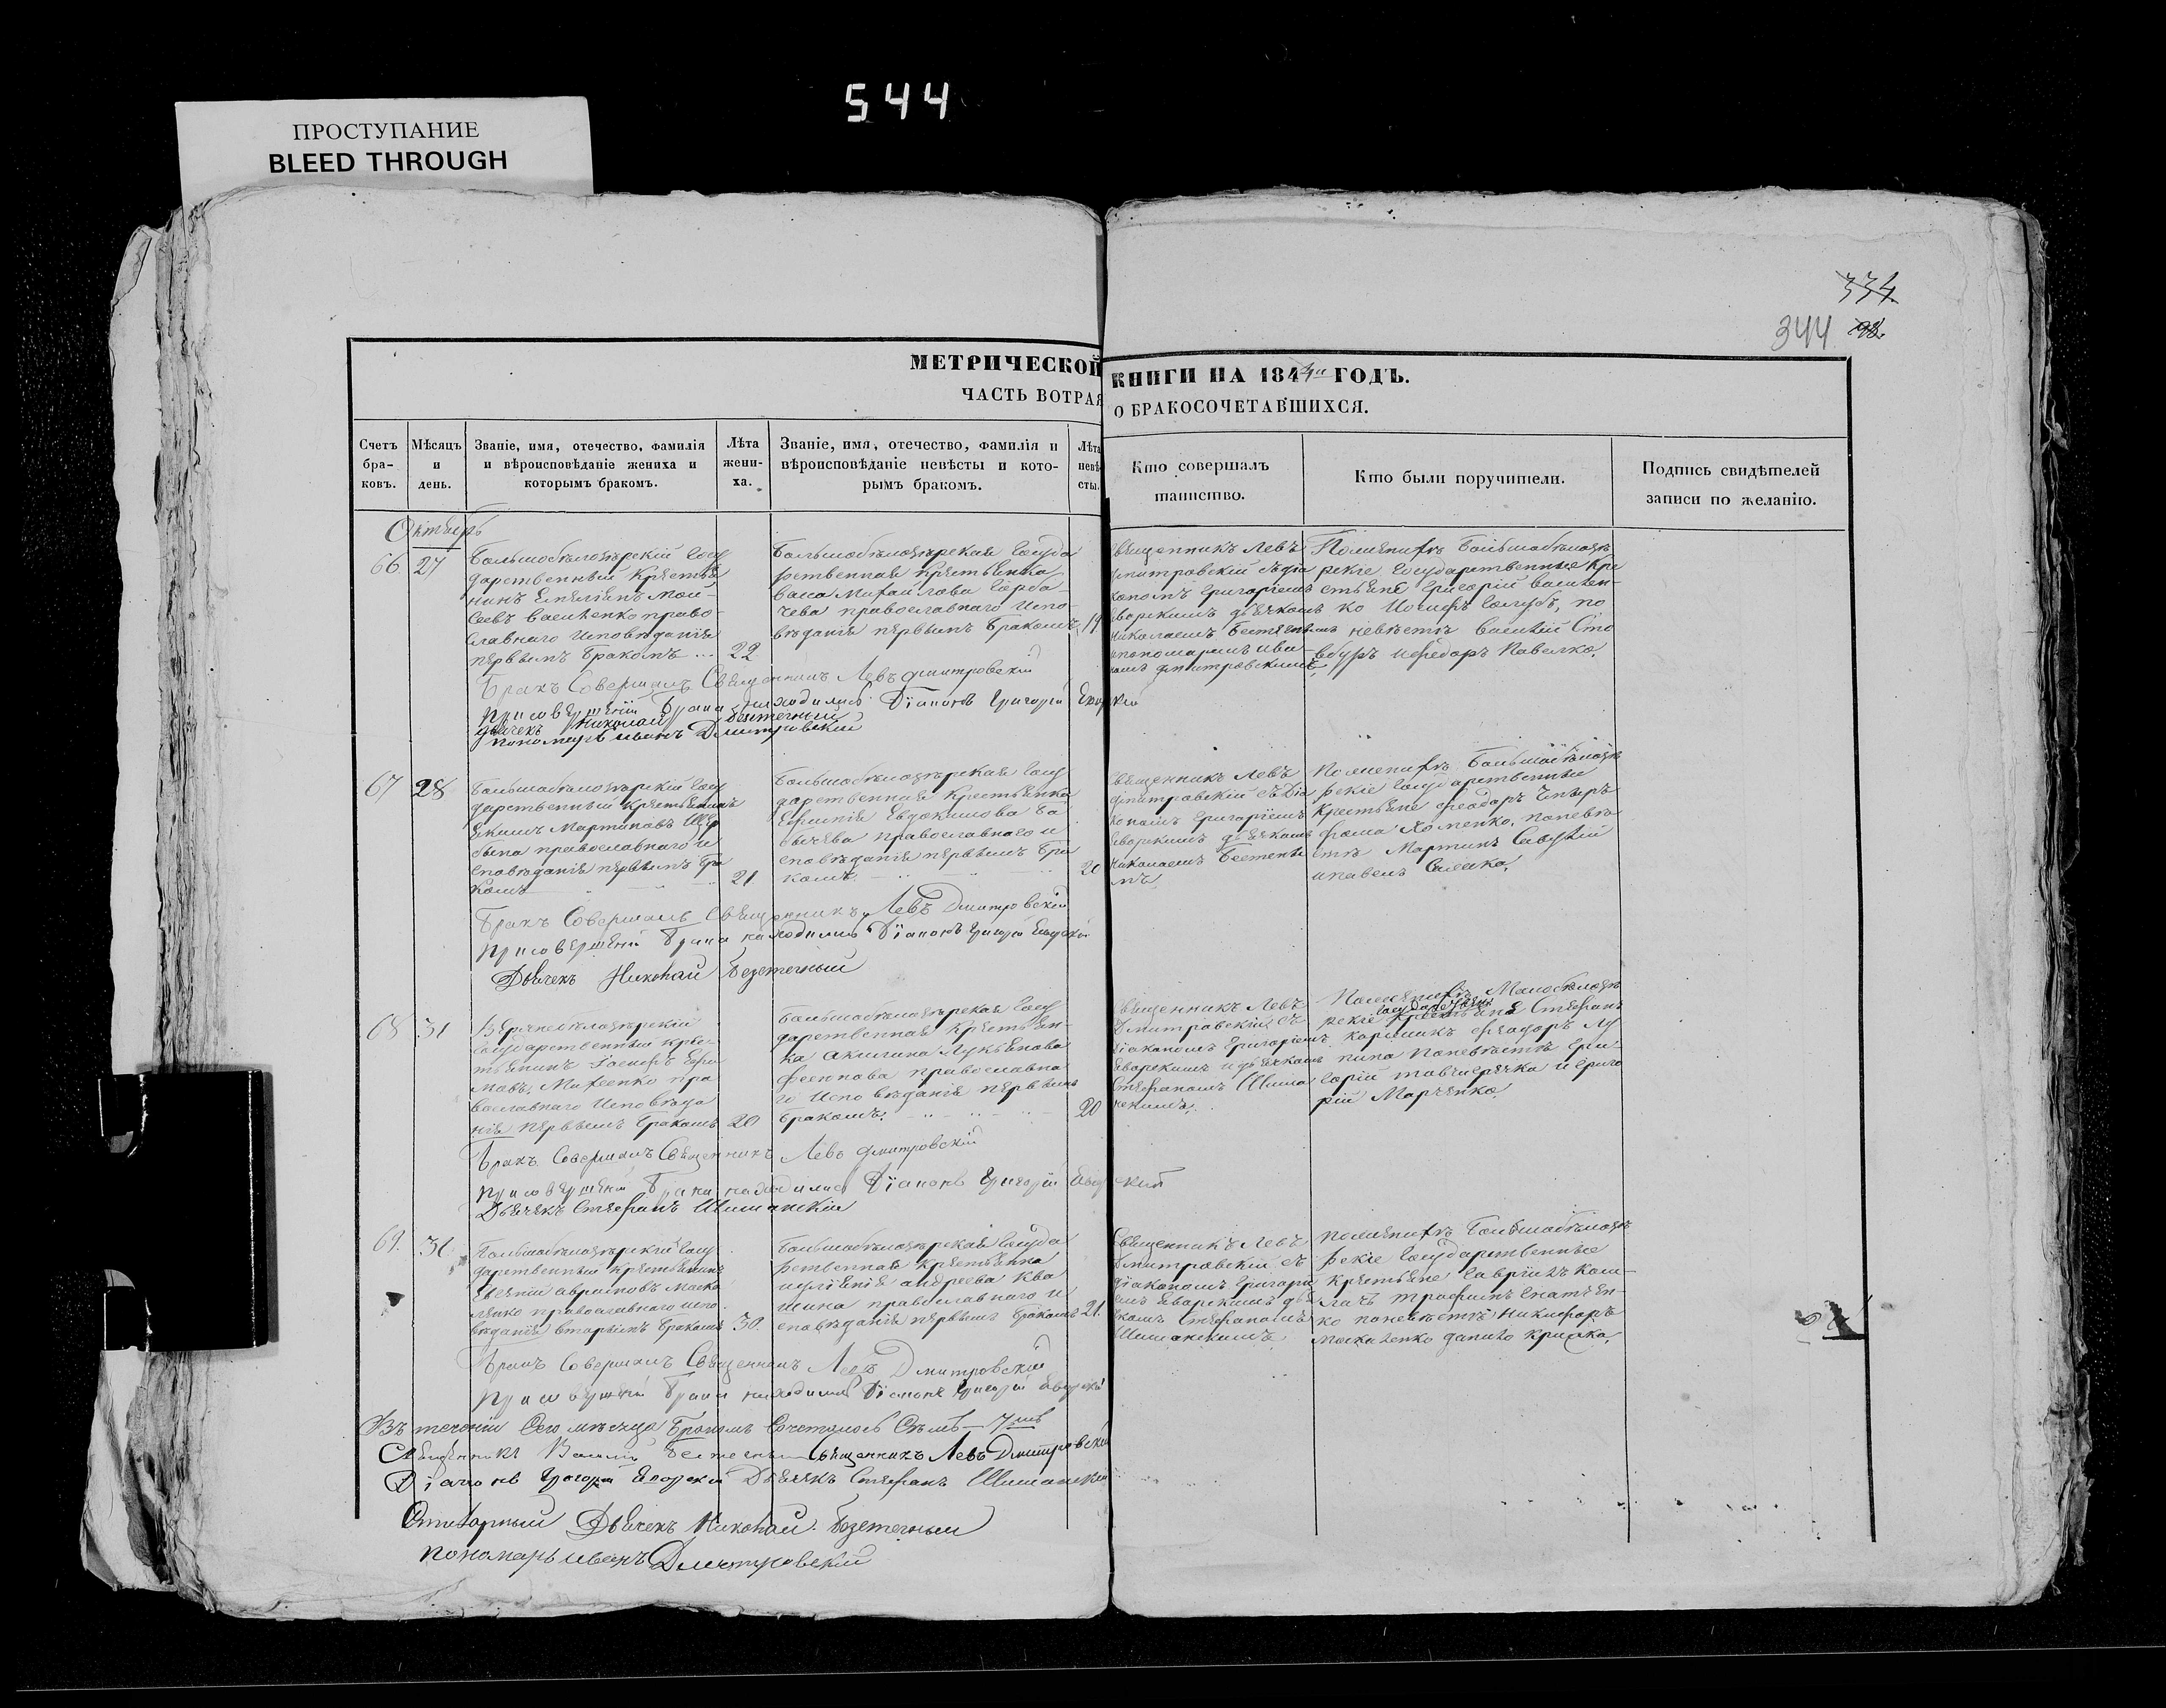 544
ПРОСТУПАНИЕ
BLEED THROUGH
334.
344 98.
МЕТРИЧЕСКОЙ КНИГИ НА 1844 ГОДЪ.
ЧАСТЬ ВОТРАЯ О БРАКОСОЧЕТАВШИХСЯ.
Счетъ бра- ковъ.
Мѣсяцъ и день.
Званіе, имя, отечество, фамилія и вѣроисповѣданіе жениха и которымъ бракомъ.
Лѣта жени- ха.
Званіе, имя, отечество, фамилія и вѣроисповѣданіе невѣсты и кото- рымъ бракомъ.
Лѣта невѣ- сты.
Кто совершалъ таинство.
Кто были поручители.
Подпись свидѣтелей записи по желанію.
Октябрь
66. 27
Большобѣлозѣрскій Госу
дарственный Крестья
нинъ Емельянъ Мои-
сеевъ Василенко право-
славнаго Исповѣданія
первымъ бракомъ
22
Большобѣлозѣрская Госуда
рственная крестьянка
Михайлова Горба-
чева православнаго Испо-
вѣданія первымъ бракомъ
19
Священникъ Левъ
Дмитровскій съ діа
кономъ Григоріемъ
Яворскимъ дьячкомъ
Николаемъ
и пономаремъ Ива-
номъ Дмитровскимъ
По женихѣ Большобѣлозѣ
рскіе Государственные кре
стьяне Григорій Василен-
ко Іосифъ Голубъ, по
невѣстѣ Василій Сто
вбуръ и Федоръ Павелко.
Бракъ Совершалъ Священникъ Левъ Дмитровскій
При совершеніи Брака находились Діаконъ Григорій
дьячекъ Николай
пономарь Иванъ Дмитровскій
67 28
Большобѣлозѣрскій Госу
дарственный крестьянинъ
Екимъ Мартиновъ Щер
бына православнаго и
сповѣданія первымъ бра
комъ
21
Большобѣлозѣрская Госу
дарственная Крестьянка
Евфимія Евдокимова Ба
бичева православнаго и
сповѣданія первымъ бра
комъ
20
Священникъ Левъ
Дмитровскій съ Діа
кономъ Григоріемъ
Яворскимъ дьячкомъ
Николаемъ
По женихѣ Большобѣлозѣ
рскіе Государственные
Крестьяне Феодоръ
Фома Хоменко, по невѣ
стѣ Мартинъ
и Павелъ
Бракъ Совершалъ Священникъ Левъ Дмитровскій
При совершеніи Брака находились Діаконъ Григорій
Дьячекъ Николай
68 31
Верхнебѣлозѣрскій
Государственный кре-
стьянинъ Іосифъ Ефи
мовъ Михеенко пра
вославнаго Исповѣда
нія первымъ бракомъ
20
Большобѣлозѣрская Госу
дарственная Крестьян-
ка Акилина Лукьянова
православна
го Исповѣданія первымъ
бракомъ
20
Священникъ Левъ
Дмитровскій съ
Діакономъ Григоріемъ
Яворскимъ и дьячкомъ
Стефаномъ Шиша
нскимъ.
По женихѣ Малобѣлозѣ
Государствен
рскіе Крестьяне Стефанъ
Феодоръ
по невѣстѣ Гри-
горій и Григо
рій Марченко.
Бракъ Совершалъ Священникъ Левъ Дмитровскій
При совершеніи Брака находились Діаконъ Григорій
Дьячекъ Стефанъ Шишанскій
69. 31
Большобѣлозѣрскій Госу
дарственный крестьянинъ
Евгеній Авраамовъ Моска
ленко православнаго испо-
вѣданія вторымъ бракомъ
30.
Большобѣлозѣрская Госуда
рственная Крестьянка
Андреева Ква
шина православнаго и
сповѣданія первымъ бракомъ
21.
Священникъ Левъ
Дмитровскій съ
Діакономъ Григорі
емъ Яворскимъ дья
чкомъ Стефаномъ
Шишанскимъ
По женихѣ Большобѣлозѣ
рскіе Государственные
Крестьяне Гавріилъ
Трофимъ Игнатен-
ко по невѣстѣ Никифоръ
Москаленко Данило
Бракъ Совершалъ Священникъ Левъ Дмитровскій
При совершеніи Брака находились Діаконъ Григорій
Въ теченіи Сего мѣсяца Бракомъ Сочеталось Семь
Священникъ Священникъ Левъ Дмитровскій
Діаконъ Григорій Дьячекъ Стефанъ Шишанскій
Дьячекъ Николай
пономарь Иванъ Дмитровскій